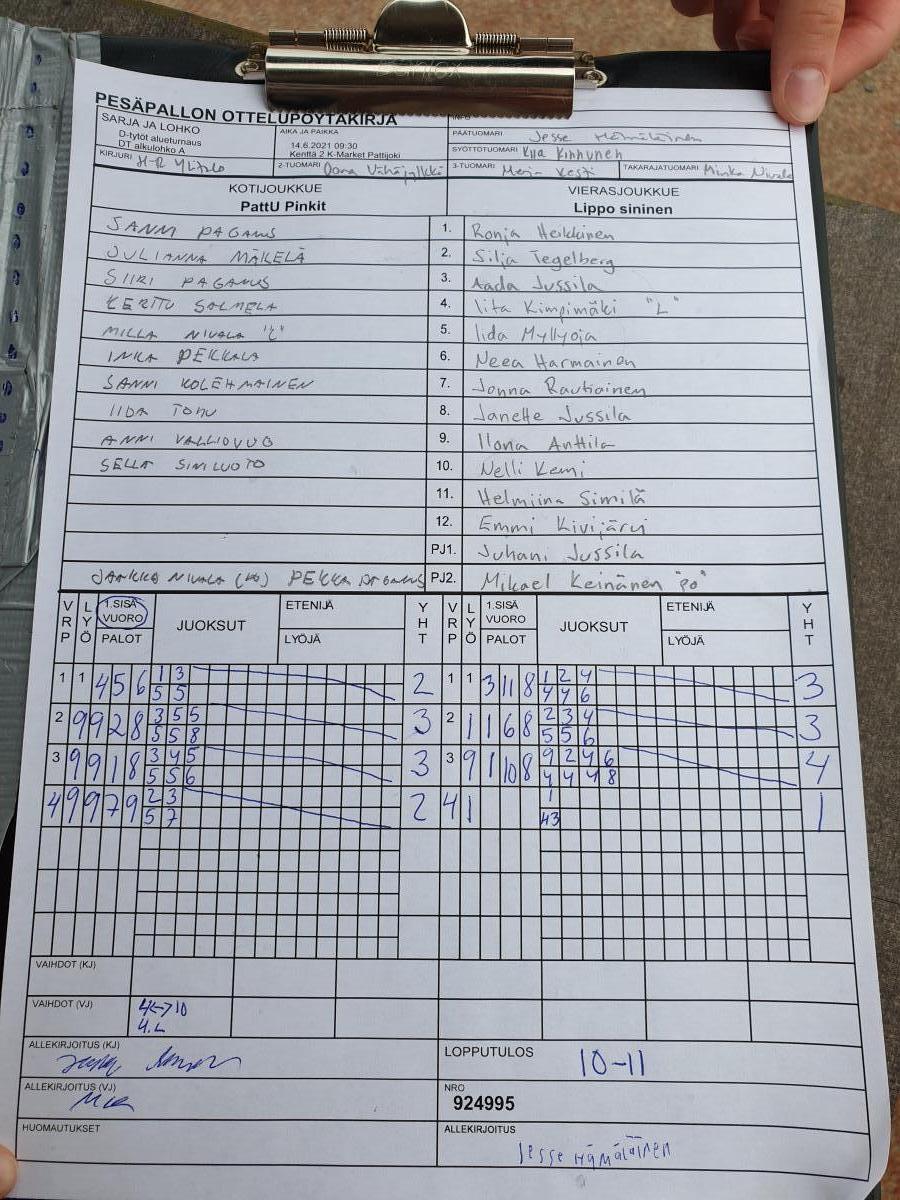 PESÄPALLON OTTELUPÖYTÄKIRJA
SARJA JA LOHKO
D-tytöt alueturnaus
DT alkulohko A
AIKA JA PAIKKA
14.6.2021 09:30
Kenttä 2 K-Market Pattijoki
PÄÄTUOMARI Jesse Hämäläinen
SYÖTTÖTUOMARI Kinnunen
KIRJURI H-R Ylitalo
2-TUOMARI Oona Vähäjylkkä
3-TUOMARI Merja Kesti
TAKARAJATUOMARI Minka Nivala
KOTIJOUKKUE
PattU Pinkit
VIERASJOUKKUE
Lippo sininen
SANNI PAGANUS 1. Ronja Heikkinen
JULIANNA MÄKELÄ 2. Silja Tegelberg
SIIRI PAGANUS 3. Aada Jussila
KERTTU SALMELA 4. Iita Kimpimäki "L"
MILLA NIVALA "L" 5. Iida Myllyoja
INKA PEKKALA 6. Neea Harmainen
SANNI KOLEHMAINEN 7. Jonna Rautiainen
IIDA TOHU 8. Janette Jussila
ANNI VALLIOVUO 9. Ilona Anttila
SELLA SINILUOTO 10. Nelli Kemi
11. Helmiina Similä
12. Emmi Kivijärvi
PJ1. Juhani Jussila
JARKKO NIVALA PEKKA PAGANUS PJ2. Mikael Keinänen "PO"
VRP LYÖ 1.SISÄVUORO PALOT JUOKSUT ETENIJÄ LYÖJÄ YHT VRP LYÖ 1.SISÄ VUORO PALOT JUOKSUT ETENIJÄ LYÖJÄ YHT
1 1 4 5 6 1 3 2 1 1 3 11 8 1 2 4 3
5 5 4 4 6
2 9 9 2 8 3 5 5 3 2 1 1 6 8 2 3 4 3
5 5 8 5 5 6
3 9 9 1 8 3 4 5 3 3 9 1 10 8 9 2 4 6 4
5 5 6 4 4 4 8
4 9 9 7 9 2 3 2 4 1 1 1
5 7 43
VAIHDOT (KJ)
VAIHDOT (VJ) 4<->10
4.L
ALLEKIRJOITUS (KJ)
LOPPUTULOS 10-11
ALLEKIRJOITUS (VJ)
NRO
924995
HUOMAUTUKSET
ALLEKIRJOITUS
Jesse Hämäläinen